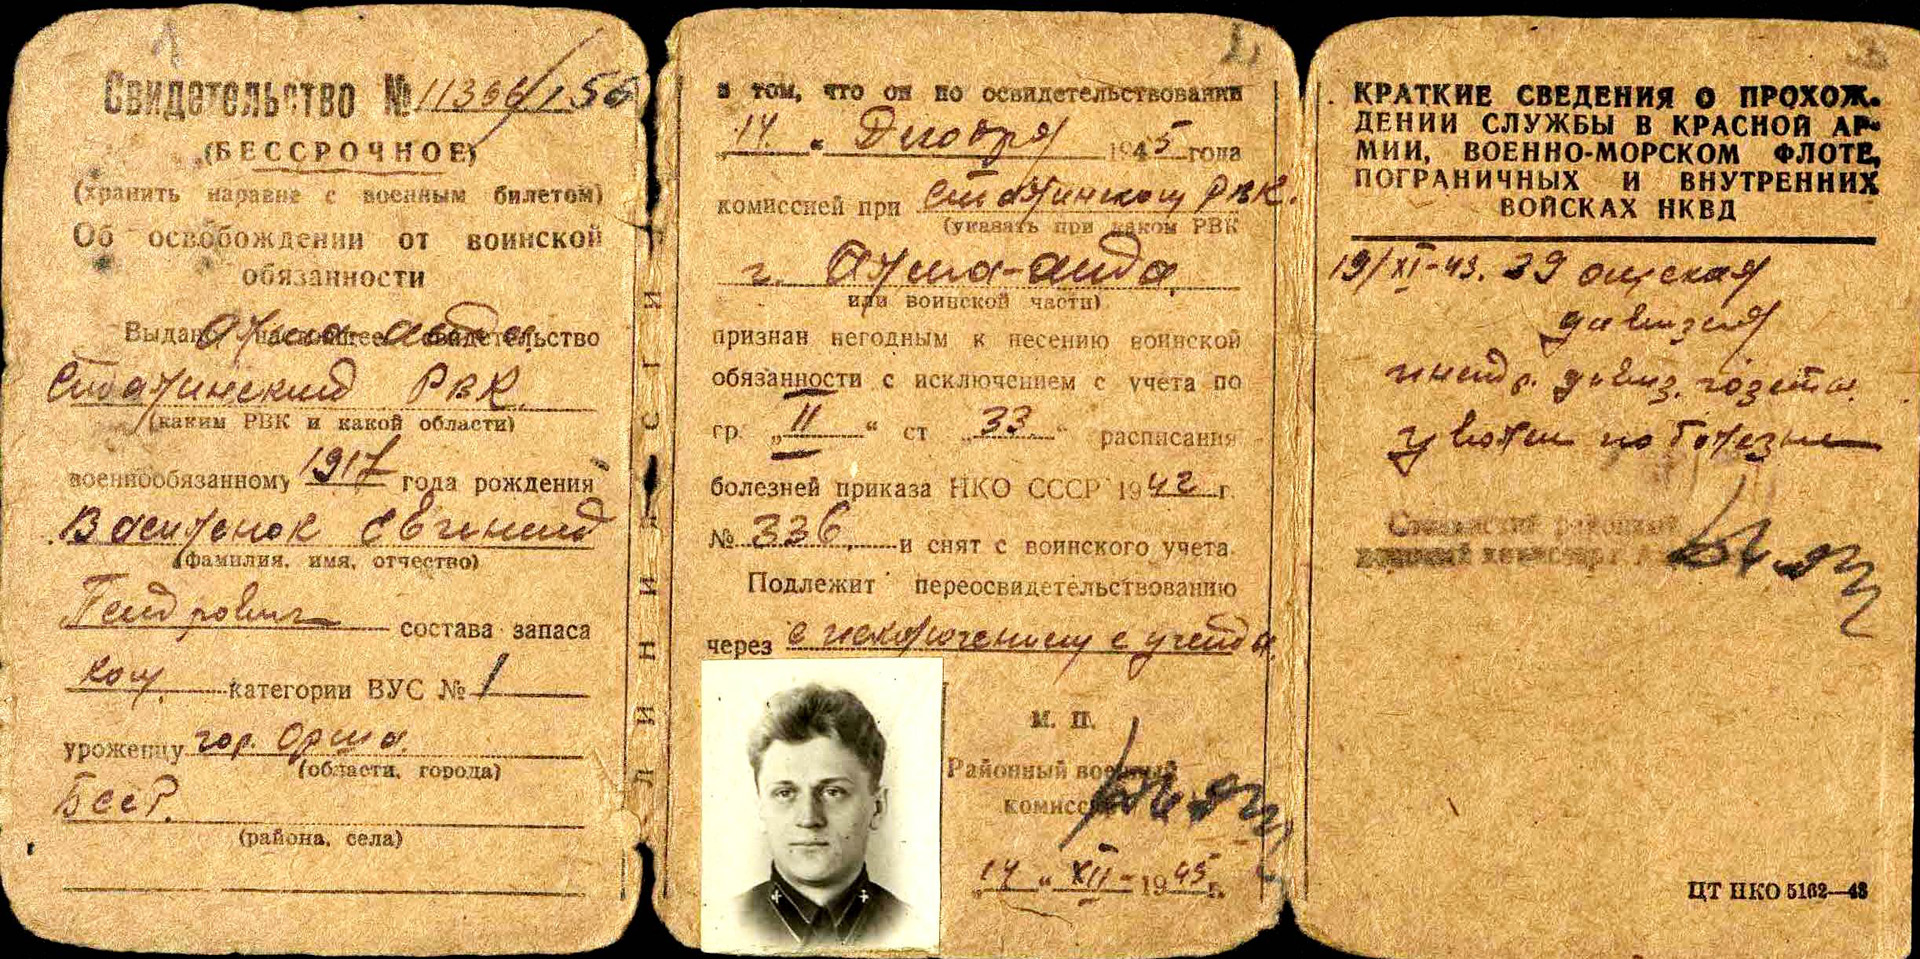 Свидетельство № 11366/156
(БЕССРОЧНОЕ)
(хранить наравне с военным билетом)
Об освобождении от воинской
обязанности
Выдано настоящее свидетельство
Алма-Ата
Сталинский РВК.
(каким РВК и какой области)
военнообязанному 1917 года рождения
Васильнок Евгений
(фамилия, имя, отчество)
Петрович состава запаса
ком. категории ВУС № 1
уроженцу гор. Орша.
(области, города)
БССР.
(района, села)
ЛИНИЯ СГИ
в том, что он по освидетельствовании
„14“ Декабря 1945 года
комиссией при Сталинском РВК.
(указать при каком РВК
г. Алма-Ата.
или воинской части)
признан негодным к несению воинской
обязанности с исключением с учета по
гр. „II“ ст „33“ расписания
болезней приказа НКО СССР 1942 г.
№ 336 и снят с воинского учета.
Подлежит переосвидетельствованию
через с исключением с учета.
М. П.
Районный военный
комисс
„14“ XII-1945 г.
КРАТКИЕ СВЕДЕНИЯ О ПРОХОЖ-
ДЕНИИ СЛУЖБЫ В КРАСНОЙ АР-
МИИ, ВОЕННО-МОРСКОМ ФЛОТЕ,
ПОГРАНИЧНЫХ И ВНУТРЕННИХ
ВОЙСКАХ НКВД
19/XI-43. 39
дивизия
дивиз. газеты.
уволен по болезни
районный
военный
ЦТ НКО 5162—43